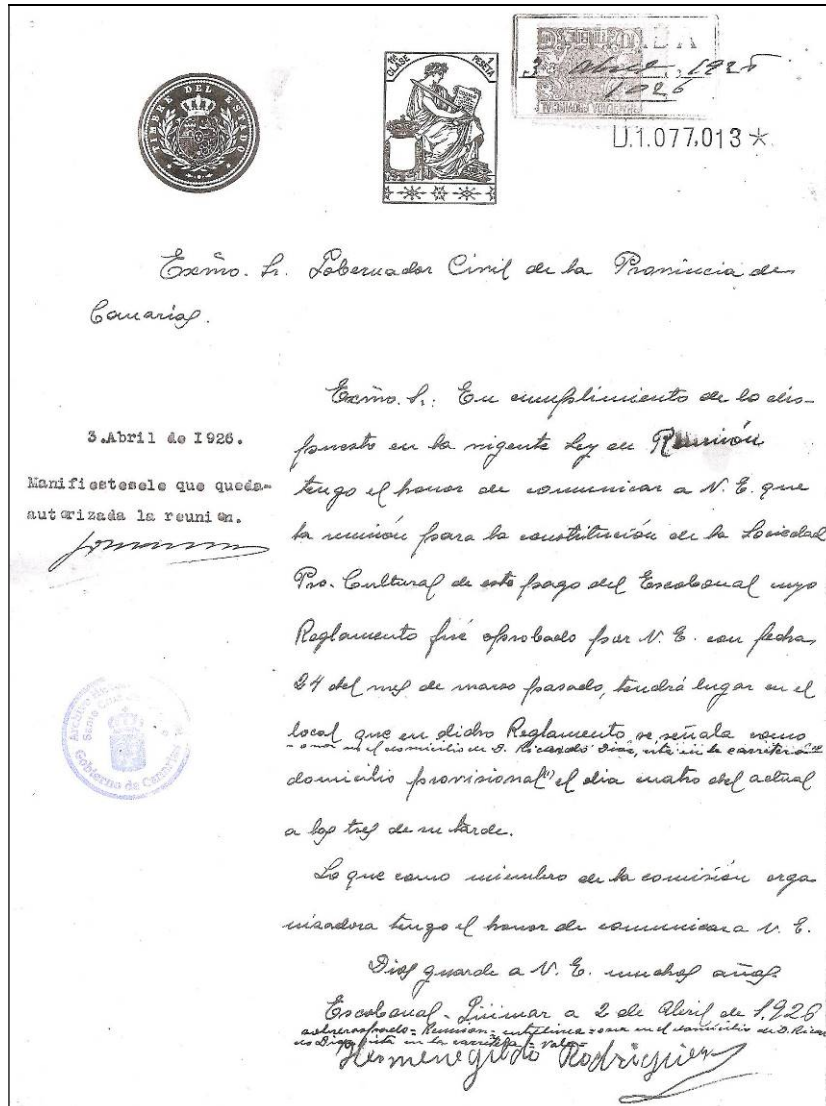 TIMBRE DEL ESTADO
1ª CLASE 1 PESETA
3 Abril 1926
1026
U.1.077,013 *
Exmo. Sr. Gobernador Civil de la Provincia de
Canarias.
3.Abril de I926.
Manifiestesele que queda-
autorizada la reunion.
Exmo. Sr: En cumplimiento de lo dis-
puesto en la vigente Ley de Reunión
tengo el honor de comunicar a V. E. que
la reunión para la constitución de la Sociedad
Pro. Cultural de este pago del Escobonal cuyo
Reglamento fué aprobado por V. E. con fecha
24 del mes de marzo pasado, tendrá lugar en el
local que en dicho Reglamento se señala como
o sea en el domicilio de D. Ricardo Diaz, sito en la carretera
domicilio provisional(") el dia cuatro del actual
a las tres de su tarde.
Lo que como miembro de la comisión orga
nizadora tengo el honor de comunicar a V. E.
Dios guarde a V. E. muchos años.
Escobonal - Güimar a 2 de Abril de 1.926
sobreraspado = Reunion = entrelinea = o sea en el domicilio de D. Ricar
do Diaz, sito en la carretera = vale =
Hermenegildo Rodriguez
Archivo
Santa Cruz
Gobierno de Canarias